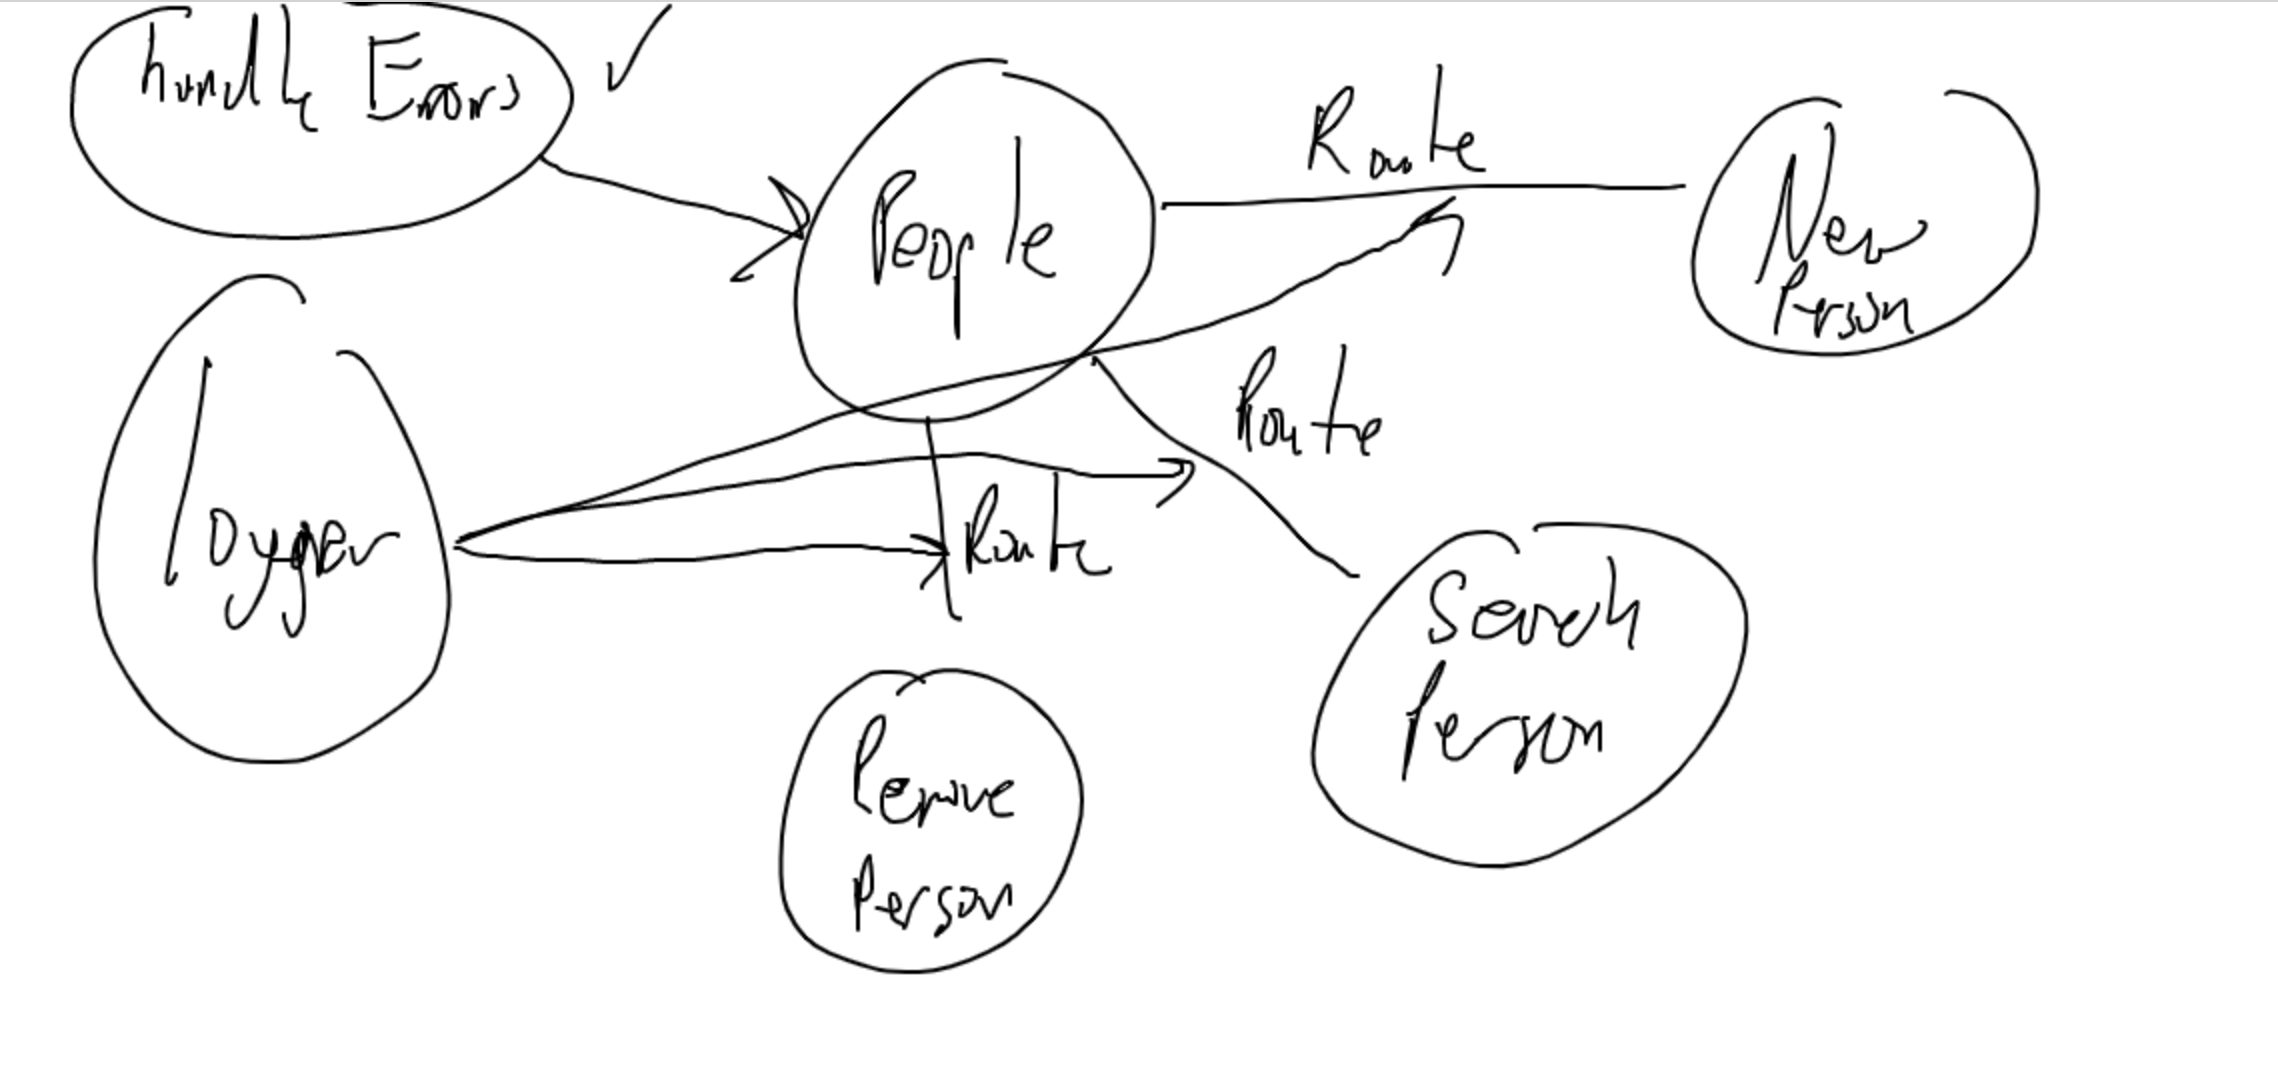 handle Errors
People
Route
New
Person
Route
logger
Route
Search
Person
Remove
Person